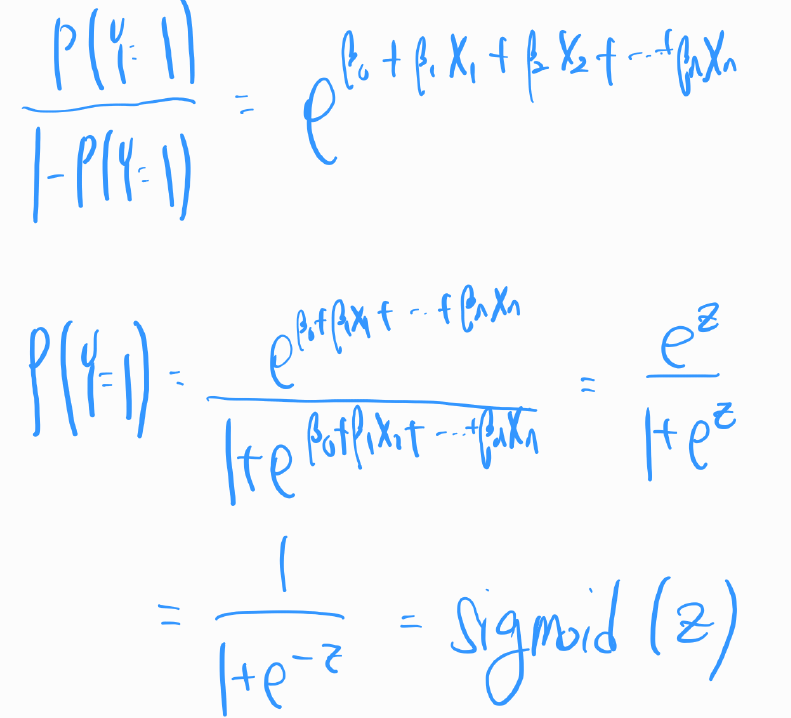 P(Y=1) / 1-P(Y=1) = e^(β₀ + β₁X₁ + β₂X₂ + ... + βₙXₙ)
P(Y=1) = e^(β₀+β₁X₁+...+βₙXₙ) / 1+e^(β₀+β₁X₁+...+βₙXₙ) = e^z / 1+e^z
= 1 / 1+e^-z = sigmoid(z)